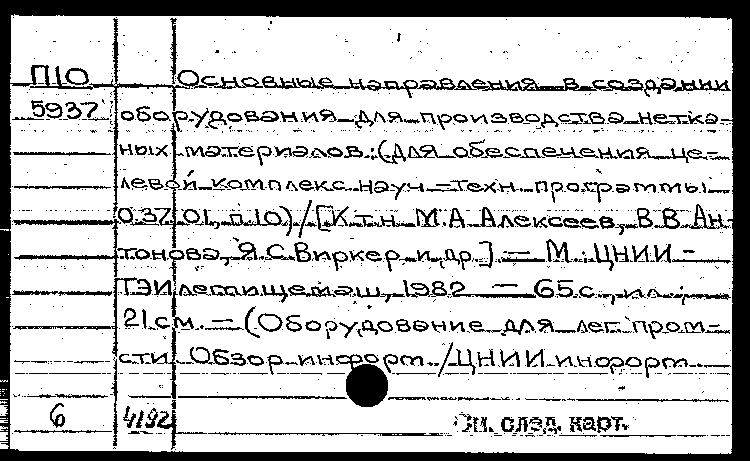 П10 Основные направления в создании
5937 оборудования для производства нетка-
ных материалов: (Для обеспечения це-
левой комплекс. науч.-техн. программы
0.37.01, п.10) / [К.т.н. М.А. Алексеев, В.В. Ан-
тонова, Я.С. Виркер и др.] — М.: ЦНИИ-
ТЭИлегпищемаш, 1982 — 65 с., ил.;
21 см. — (Оборудование для лег. пром-
сти. Обзор. информ. / ЦНИИ информ.
6 4192 См. след. карт.